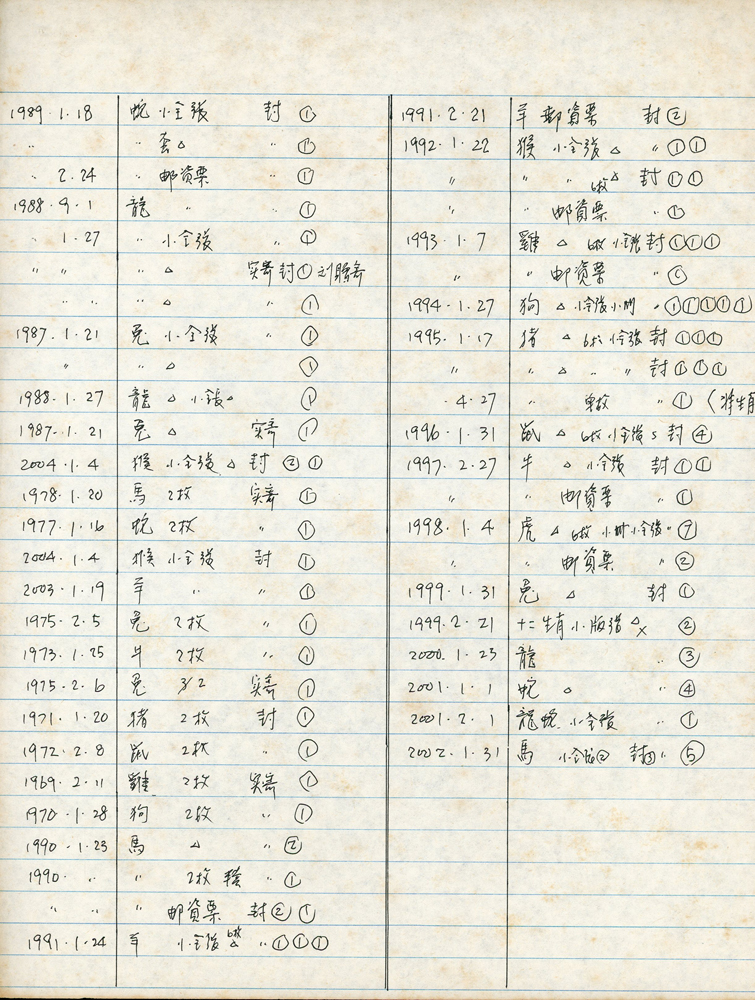 1989.1.18 蛇 小全張 封 ①
〃 〃 〃 套△ 〃 ①
〃 2.24 〃 邮資票 〃 ①
1988.9.1 龍 〃 〃 ①
〃 1.27 〃 小全張 〃 ①
〃 〃 〃 △ 实寄封①
〃 〃 〃 △ ①
1987.1.21 兎 小全張 〃 ①
〃 〃 △ ①
1988.1.27 龍 △ 小全張△ ①
1987.1.21 兎 △ 实寄 ①
2004.1.4 猴 小全張 △ 封 ② ①
1978.1.20 馬 2枚 实寄 ①
1977.1.16 蛇 2枚 〃 ①
2004.1.4 猴 小全張 封 ①
2003.1.19 羊 〃 〃 ①
1975.2.5 兎 2枚 〃 ①
1973.1.25 牛 2枚 〃 ①
1975.2.6 兎 3/2 实寄 ①
1971.1.20 猪 2枚 封 ①
1972.2.8 鼠 2枚 〃 ①
1969.2.11 雞 2枚 实寄 ①
1970.1.28 狗 2枚 〃 ①
1990.1.23 馬 △ 〃 ②
1990. 〃 〃 2枚 〃 ①
〃 〃 〃 邮資票 封 ② ①
1991.1.24 羊 小全張 6枚 △ 〃 ①①①
1991.2.21 羊 邮資票 封②
1992.1.22 猴 小全張 △ 〃 ①①
〃 〃 〃 6枚 △ 封 ①①
〃 〃 邮資票 〃 ①
1993.1.7 雞 △ 6枚 小全張 封 ①①①
〃 〃 邮資票 〃
1994.1.27 狗 △ 小全張 〃 ①①①①①
1995.1.17 猪 △ 6枚 小全張 封 ①①①
〃 〃 △ 〃 〃 封 ①①①
4.27 〃 單枚 〃 ①
1996.1.31 鼠 △ 6枚 小全張 5 封 ④
1997.2.27 牛 △ 小全張 封 ①①
〃 〃 邮資票 〃 ①
1998.1.4 虎 △ 6枚 小全張 〃 ⑦
〃 〃 邮資票 〃 ②
1999.1.31 兎 △ 封 ①
1999.2.21 十二生肖 小版張 △x ②
2000.1.23 龍 〃 ③
2001.1.1 蛇 △ 〃 ④
2001.2.1 龍蛇 小全張 〃 ①
2002.1.31 馬 小全張② 封③ 〃 ⑤